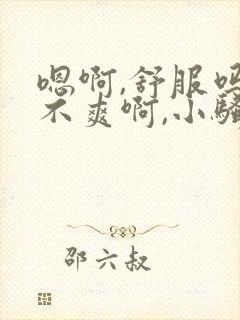 嗯啊,舒服吗
不爽啊,小骚
邵六叔